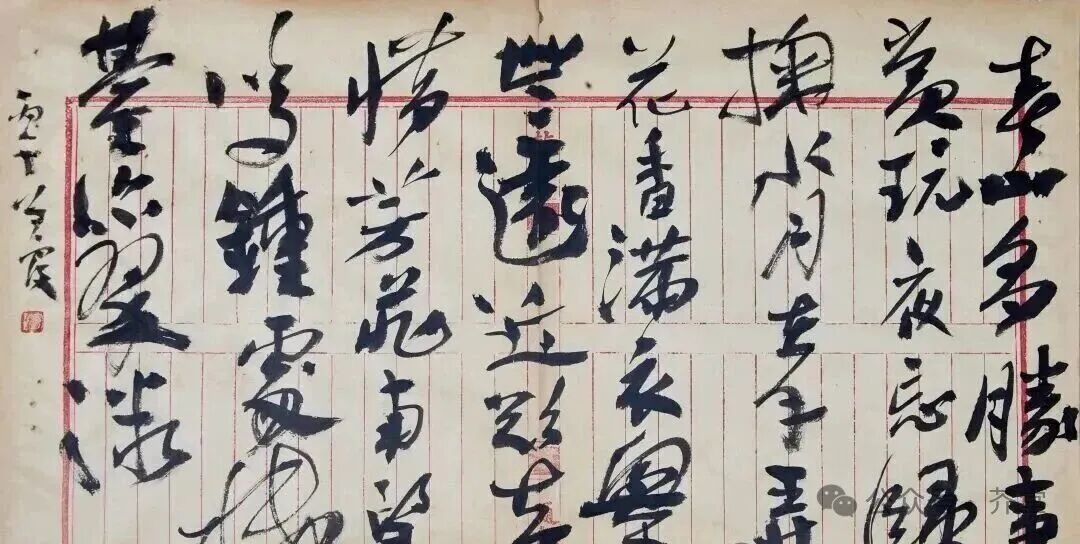 春山多勝事
賞玩夜忘歸
掬水月在手弄
花香滿衣興
無遠近欲去
惜芳菲南望
鳴鍾處樓
臺深翠微